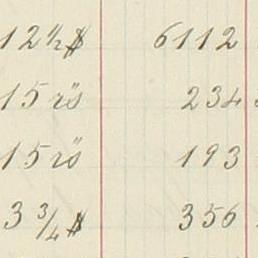 12½ ₰ 6112
15 rö 234
15 rö 193
3 ¾ ₰ 356